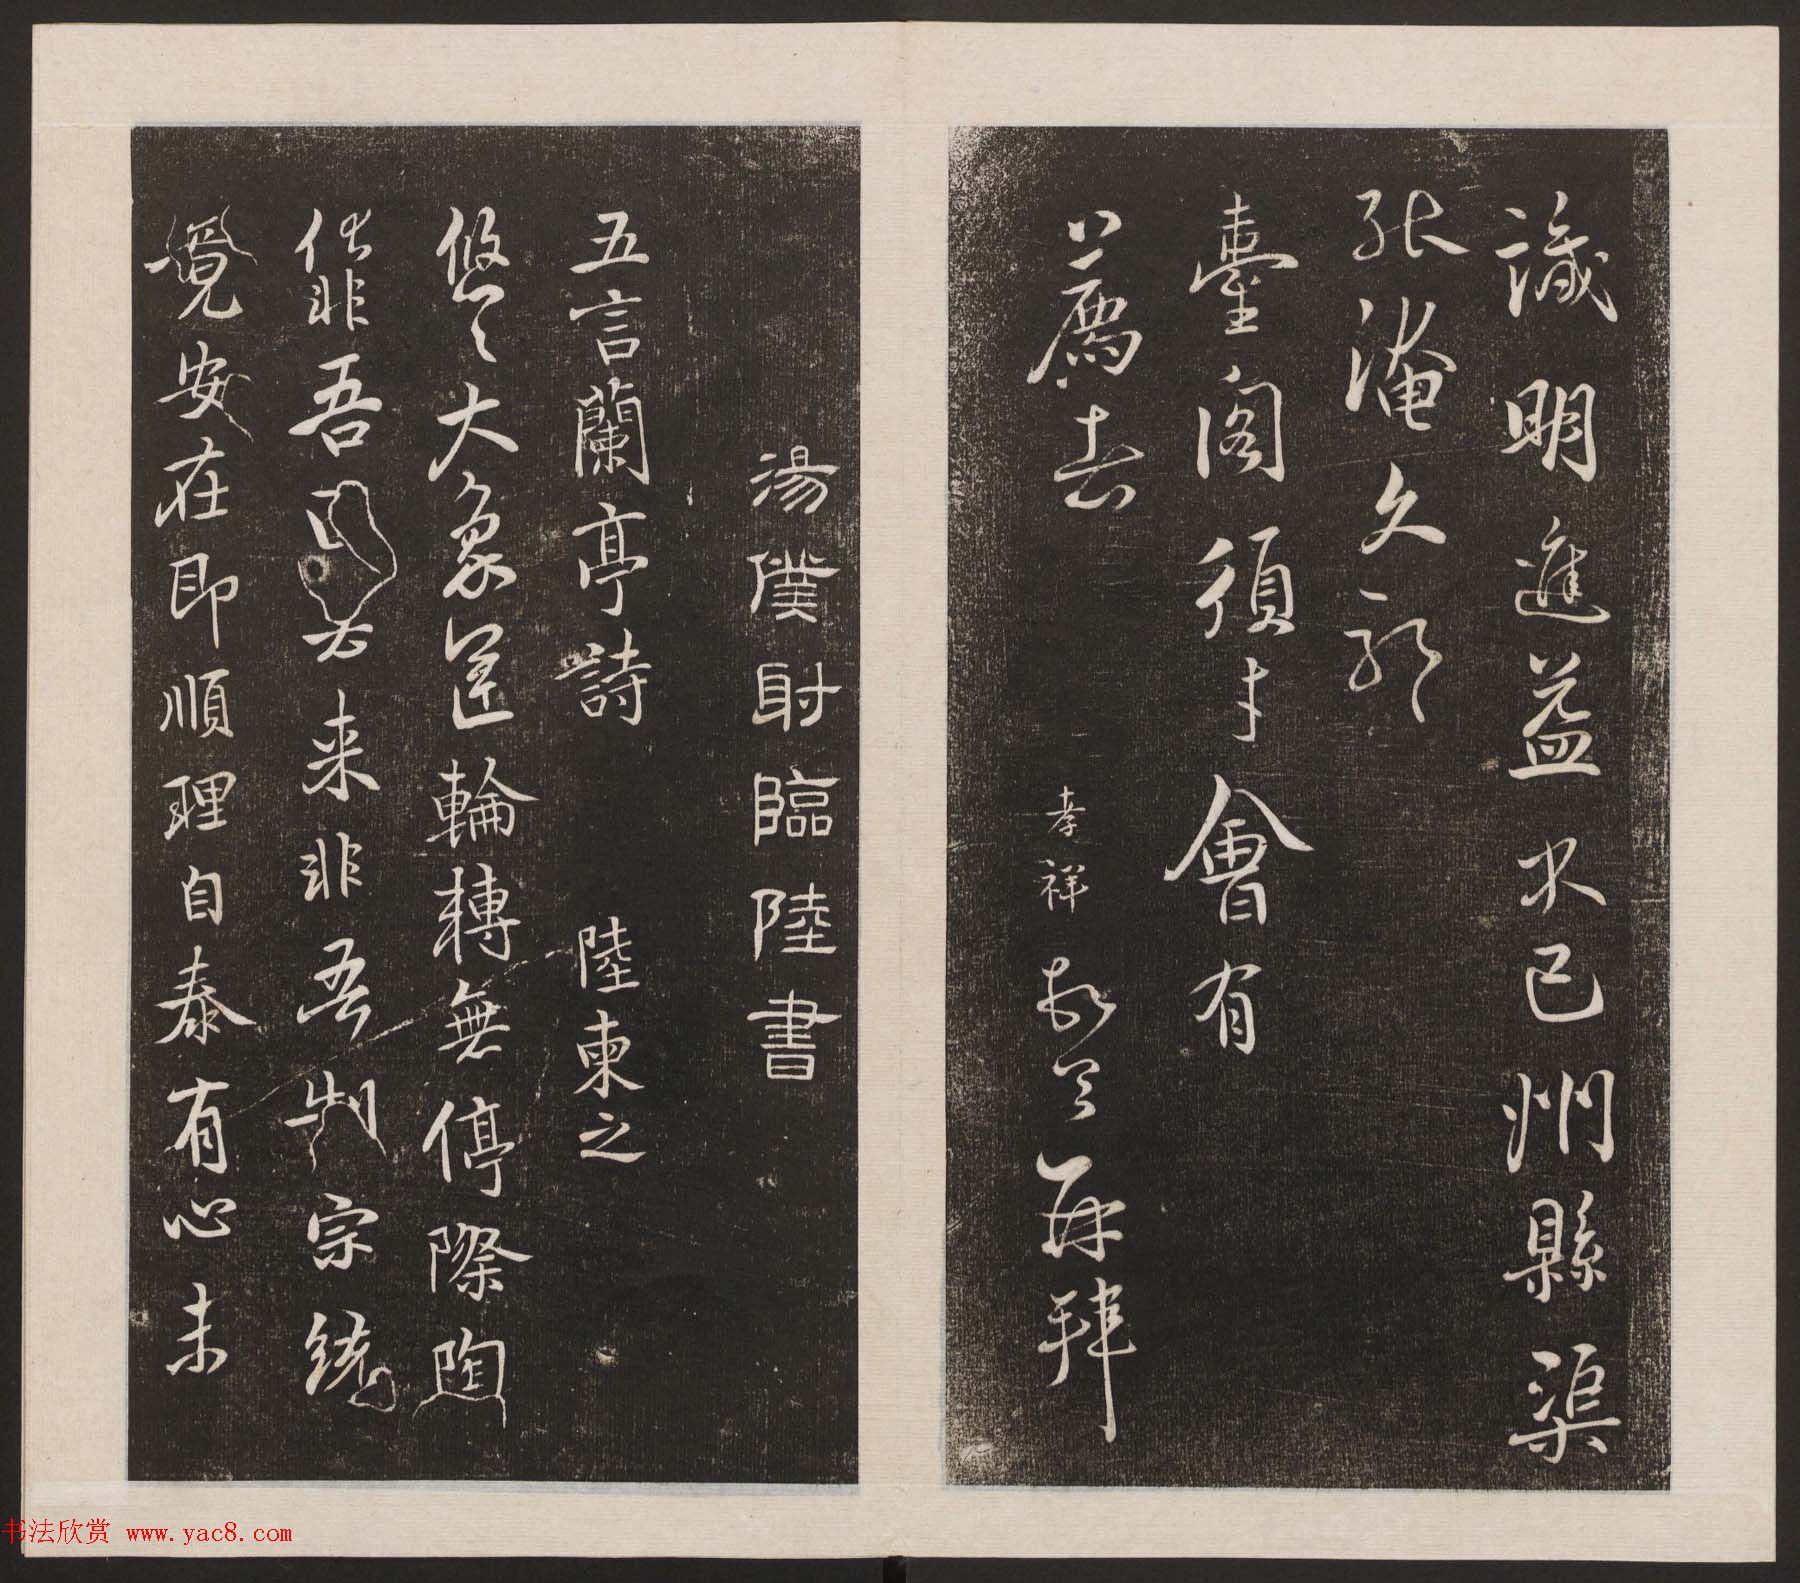 識明進益火已州縣渠
張淹久歌
臺閣須才會有
公薦去
孝祥敬又再拜
湯僕射臨陸書
五言蘭亭詩 陸柬之
悠〻大象運輪轉無停際陶
化非吾因去来非吾制宗統
竟安在即順理自泰有心未
书法欣赏 www.yac8.com